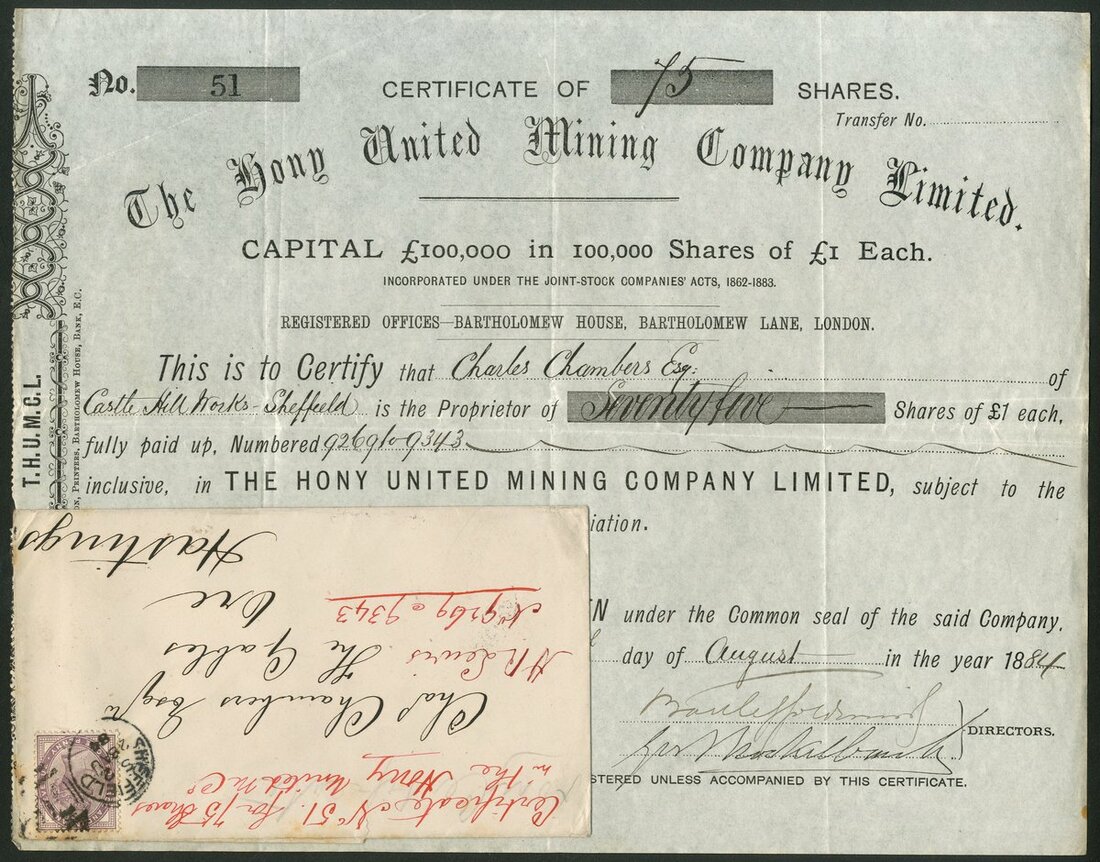 No. 51
CERTIFICATE OF 75 SHARES.
Transfer No.
The Hony United Mining Company Limited.
CAPITAL £100,000 in 100,000 Shares of £1 Each.
INCORPORATED UNDER THE JOINT-STOCK COMPANIES' ACTS, 1862-1883.
REGISTERED OFFICES—BARTHOLOMEW HOUSE, BARTHOLOMEW LANE, LONDON.
This is to Certify that Charles Chambers Esq: of
Castle Hill Works - Sheffield is the Proprietor of Seventy five Shares of £1 each,
fully paid up, Numbered 9269 to 9343
inclusive, in THE HONY UNITED MINING COMPANY LIMITED, subject to the
iation.
EN under the Common seal of the said Company,
day of August in the year 1884
DIRECTORS.
STERED UNLESS ACCOMPANIED BY THIS CERTIFICATE.
T.H.U.M.C.L.
ON, PRINTERS, BARTHOLOMEW HOUSE, BANK, E.C.
Certificate No 51 for 75 Shares
in the Hony United M Co
Chas Chambers Esqr
H R Lewis
The Gables
No 9269 @ 9343
Ore
Hastings
SHEFFIELD